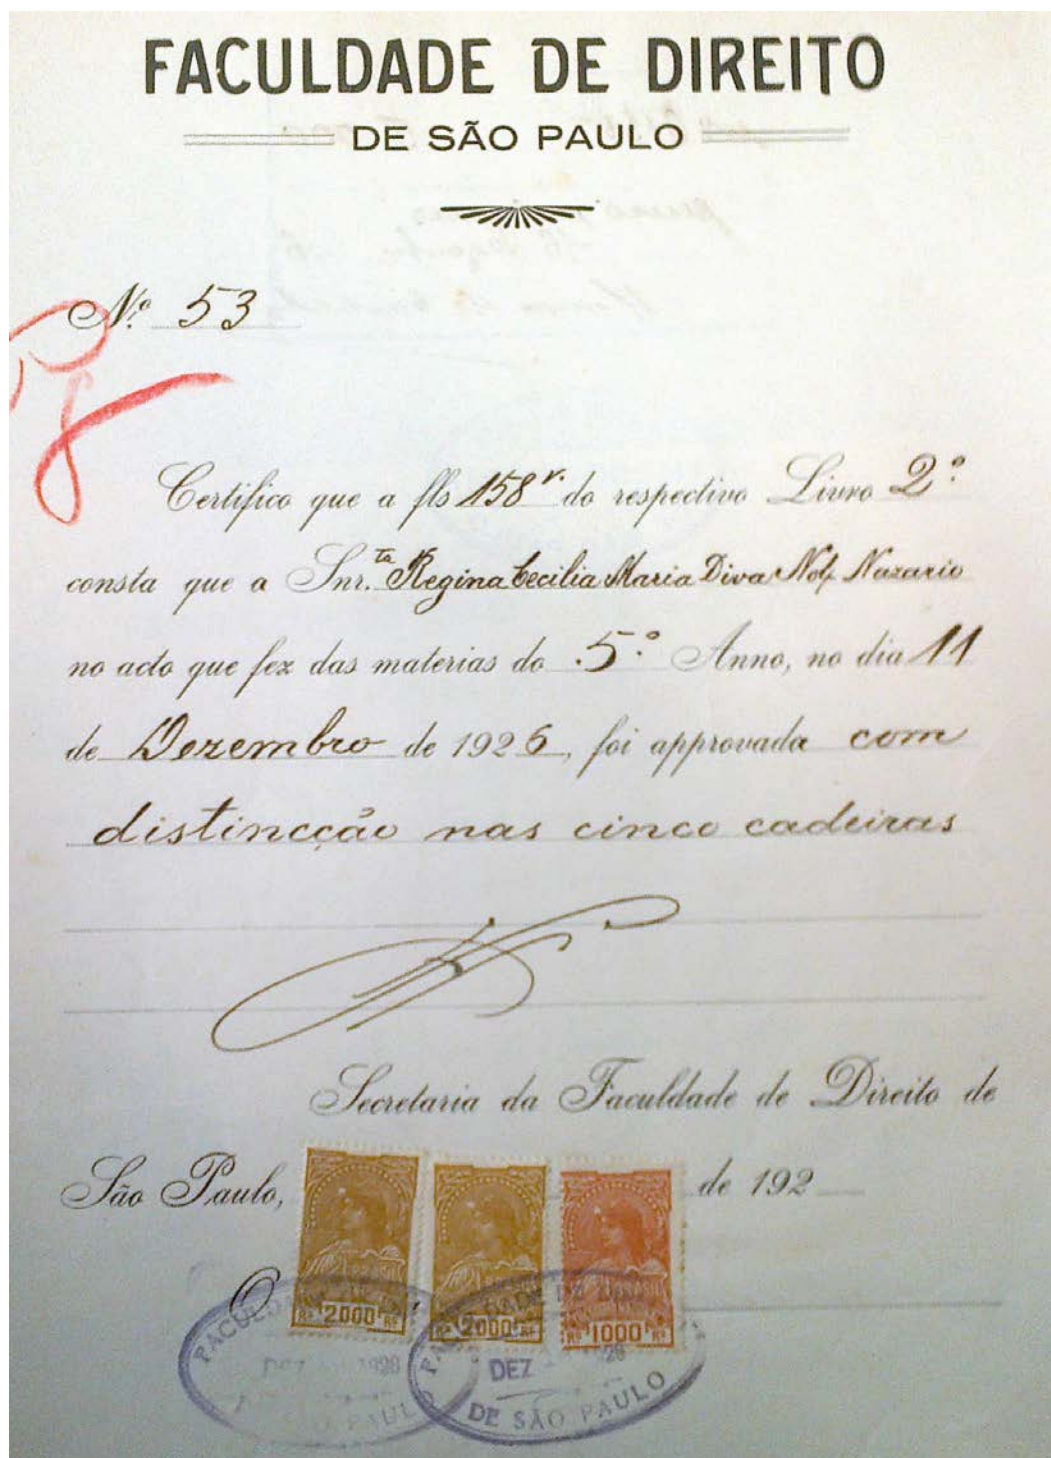 FACULDADE DE DIREITO
DE SÃO PAULO
Nº 53
Certifico que a fls 158 v. do respectivo Livro 2º
consta que a Snr.ta Regina Cecilia Maria Diva Nolf Nazario
no acto que fez das materias do 5º Anno, no dia 11
de Dezembro de 1926, foi approvada com
distincção nas cinco cadeiras
Secretaria da Faculdade de Direito de
São Paulo, de 192
O
BRASIL
Rs 2000 Rs
Rs 2000 Rs
Rs 1000 Rs
FACULDADE DE
DEZ 1928
SÃO PAULO
FACULDADE DE DIREITO
DEZ 28
DE SÃO PAULO